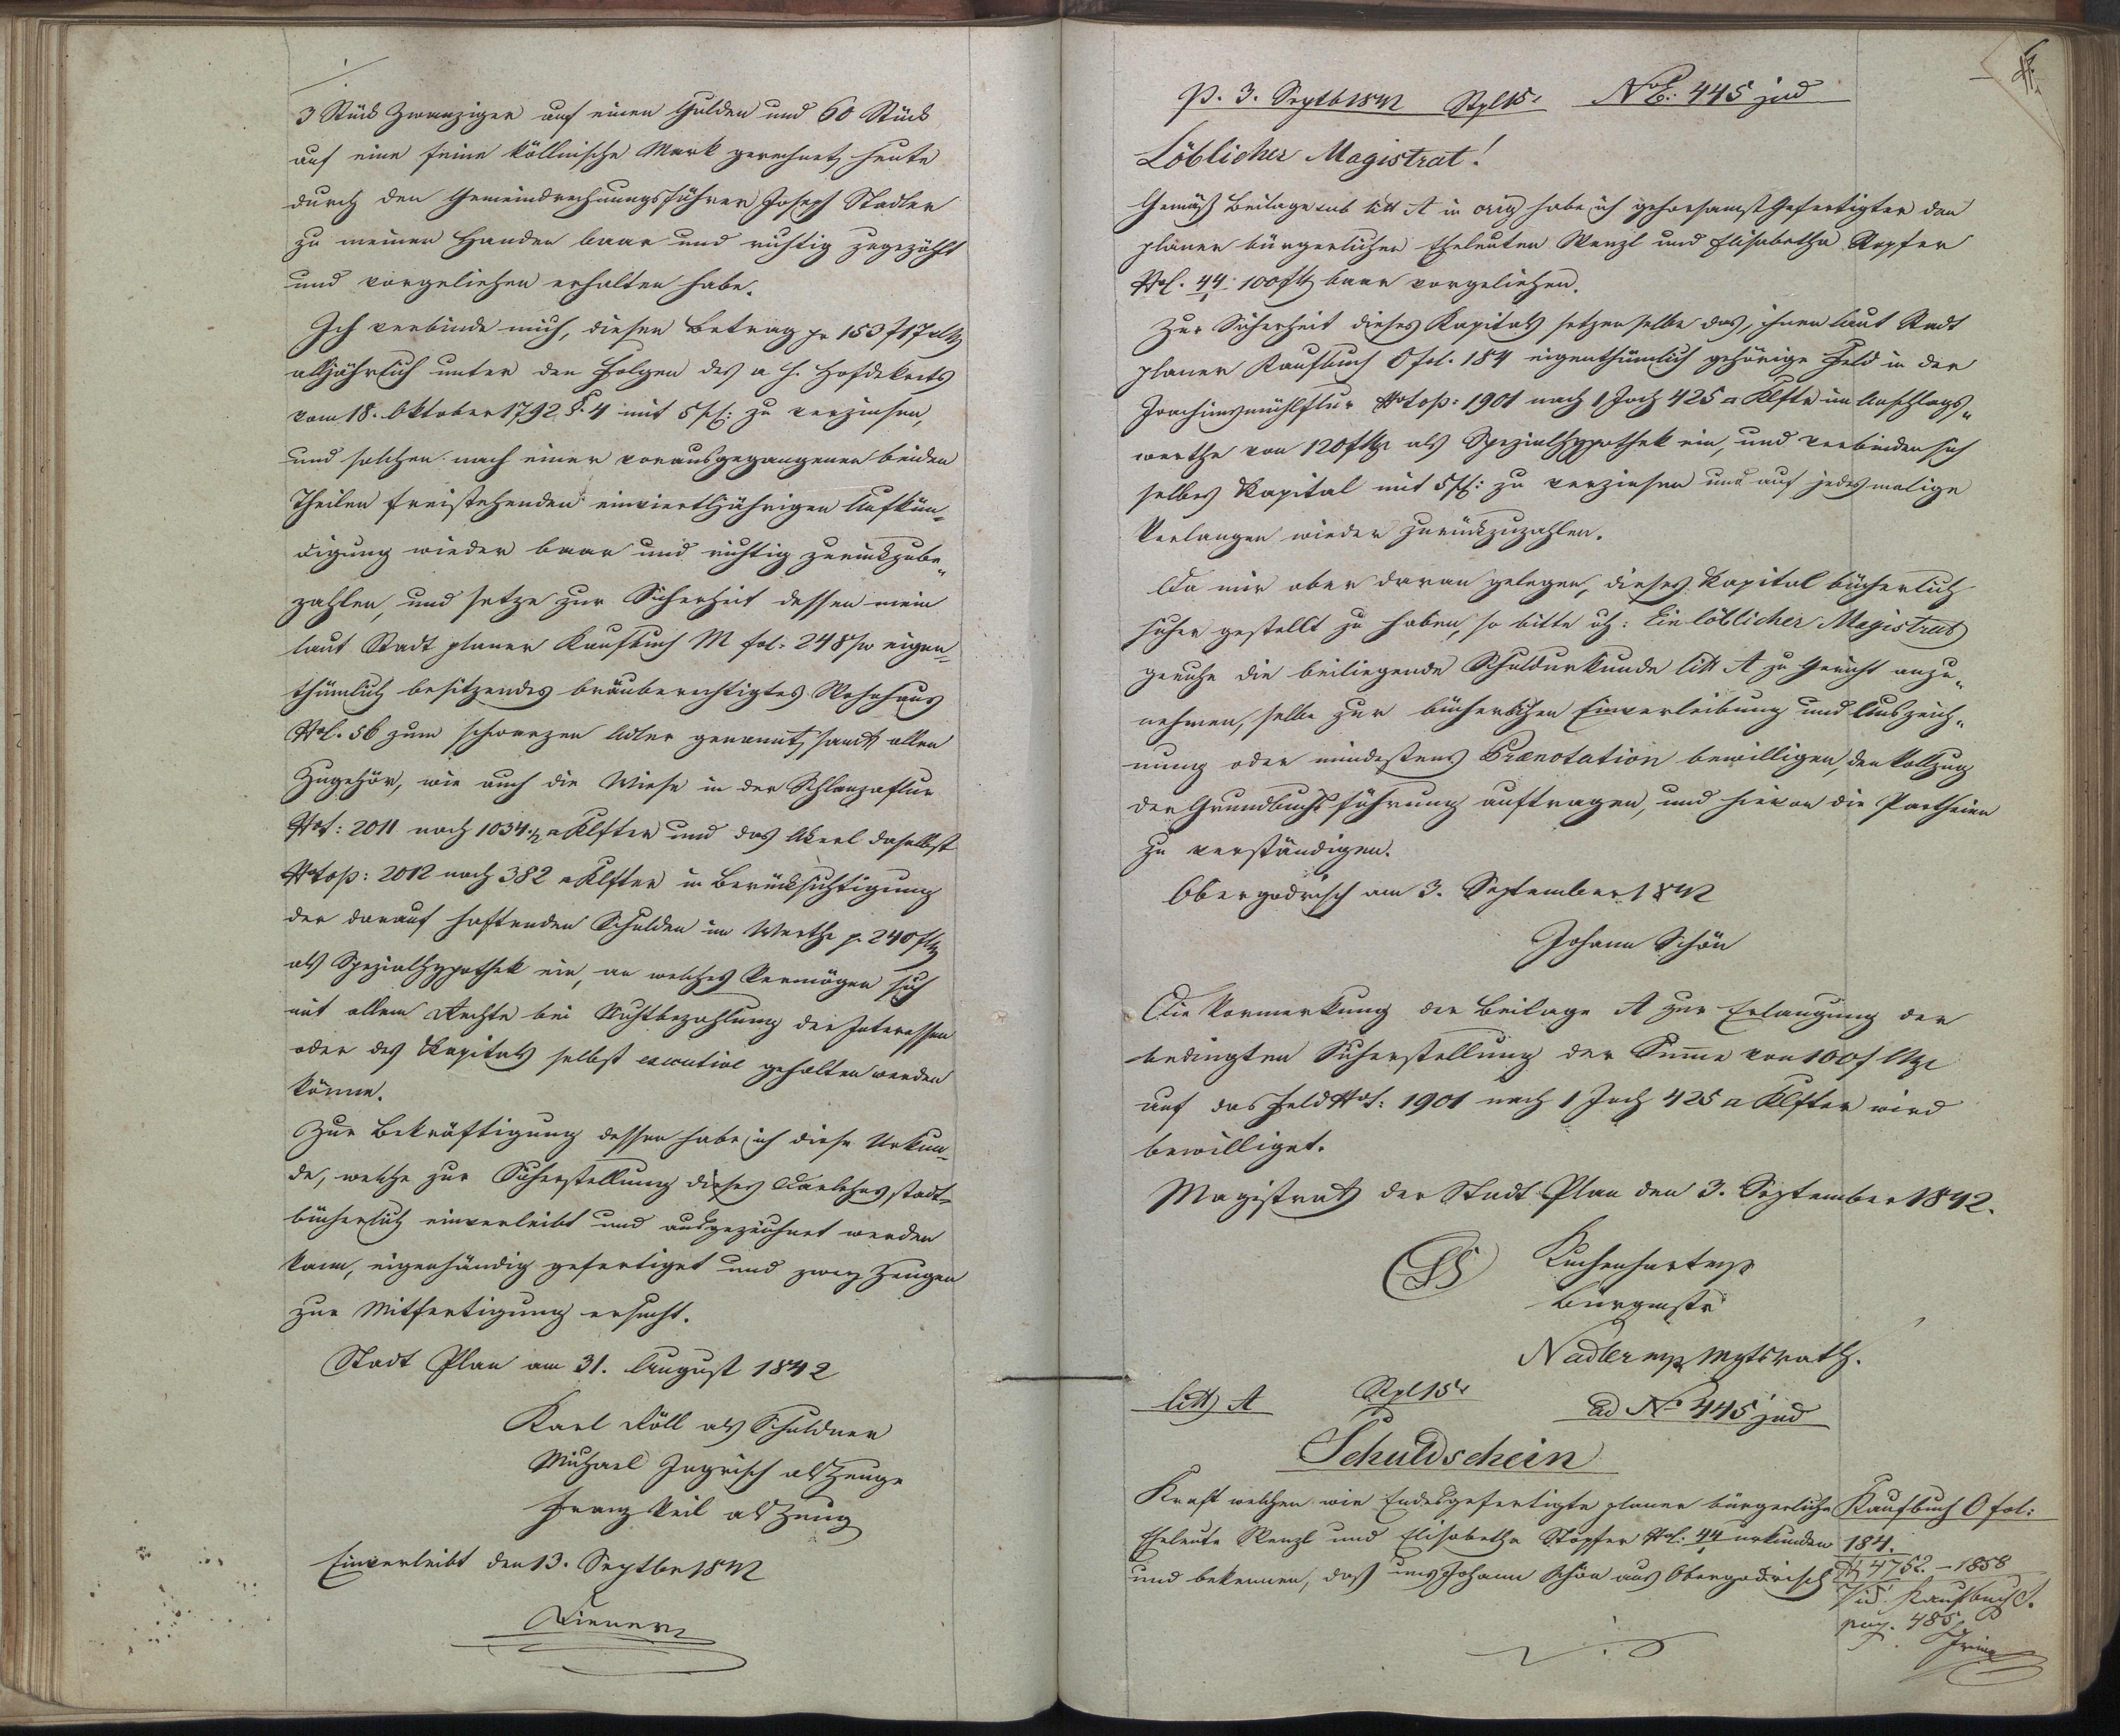 3 Stück Zwanziger auf einen Gulden und 60 Stück
auf eine feine köllnische Mark gerechnet, heute
durch den Gemeindrechnungsführer Joseph Stadler
zu meinen Handen baar und richtig zugezählt
und vorgeliehen erhalten habe.
Ich verbinde mich, diesen Betrag pr 153 f 17
alljährlich unter den Folgen des a. h. Hofdekrets
vom 18. Oktober 1792 §. 4 mit 5 pC: zu verzinsen,
und solchen nach einer vorausgegangenen beiden
Theilen freistehenden einvierthljährigen Aufkün-
digung wieder baar und richtig zurückzube-
zahlen, und setze zur Sicherheit dessen mein
laut Stadt planer Kaufbuch M fol: 248 eigen-
thümlich besitzendes bräuberechtigtes Wohnhaus
No C. 56 zum schwarzen Adler genannt, sammt allen
Zugehör, wie auch die Wiese in der Schlanzaflur
No t: 2011 nach 1034 ½ □ Klfter und das Akerl daselbst
No top: 2012 nach 382 □ Klfter in Berücksichtigung
der darauf haftenden Schulden im Werthe p. 240 f
als Spezialhypothek ein, an welches Vermögen sich
mit allem Rechte bei Nichtbezahlung der Interessen
oder des Kapitals selbst executive gehalten werden
könne.
Zur Bekräftigung dessen habe ich diese Urkun-
de, welche zur Sicherstellung dieses Darlehns stadt-
bücherlich einverleibt und ausgezeichnet werden
kann, eigenhändig gefertiget und zwey Zeugen
zur Mitfertigung ersucht.
Stadt Plan am 31. August 1842
Karl Döll als Schuldner
Michael Ingrisch als Zeuge
Franz Keil als Zeug
Einverleibt den 13. Septber 1842
P. 3. Septb 1842 Stpl 15 x No E: 445 jud
Löblicher Magistrat!
Gemäß Beilage sub litt A in orig habe ich gehorsamst Gefertigter den
planer bürgerlichen Eheleuten Wenzl und Elisabetha Stopfer
No C. 44 100 f baar vorgeliehen.
Zur Sicherheit dieses Kapitals setzen selbe das, ihnen laut Stadt
planer Kaufbuch O fol. 184 eigenthümlich gehörige Feld in der
Joachimsmühlflur No top: 1901 nach 1 Joch 425 □ Klftr im Anschlags-
werthe von 120 f als Spezialhypothek ein, und verbinden sich
selbes Kapital mit 5 pC: zu verzinsen und auf jedesmalige
Verlangen wieder zurückzuzahlen.
Da mir aber daran gelegen, dieses Kapital bücherlich
sicher gestellt zu haben, so bitte ich: Ein löblicher Magistrat
geruhe die beiliegende Schuldurkunde litt A zu Gericht anzu-
nehmen, selbe zur bücherlichen Einverleibung und Auszeich-
nung oder mindestens Prænotation bewilligen, den Vollzug
der Grundbuchsführung auftragen, und hievon die Partheien
zu verständigen.
Obergodrisch am 3. September 1842
Johann Schön
Die Vormerkung der Beilage A zur Erlangung der
bedingten Sicherstellung der Summe von 100 f
auf das Feld No t: 1901 nach 1 Joch 425 □ Klfter wird
bewilliget.
Magistrat der Stadt Plan den 3. September 1842.
LS Kuchenhart mp
Bürgmstr
Nadler mp Mgtsrath.
litt A Stpl 15 x ad No 445 jud
Schuldschein
Kraft welchen wir Endesgefertigte planer bürgerliche
Eheleute Wenzl und Elisabetha Stopfer No C. 44 urkunden
und bekennen, daß uns Johann Schön aus Obergodrisch
Kaufbuch O fol:
184.
4752. – 1858
Vid. Kaufbuch
pag. 485